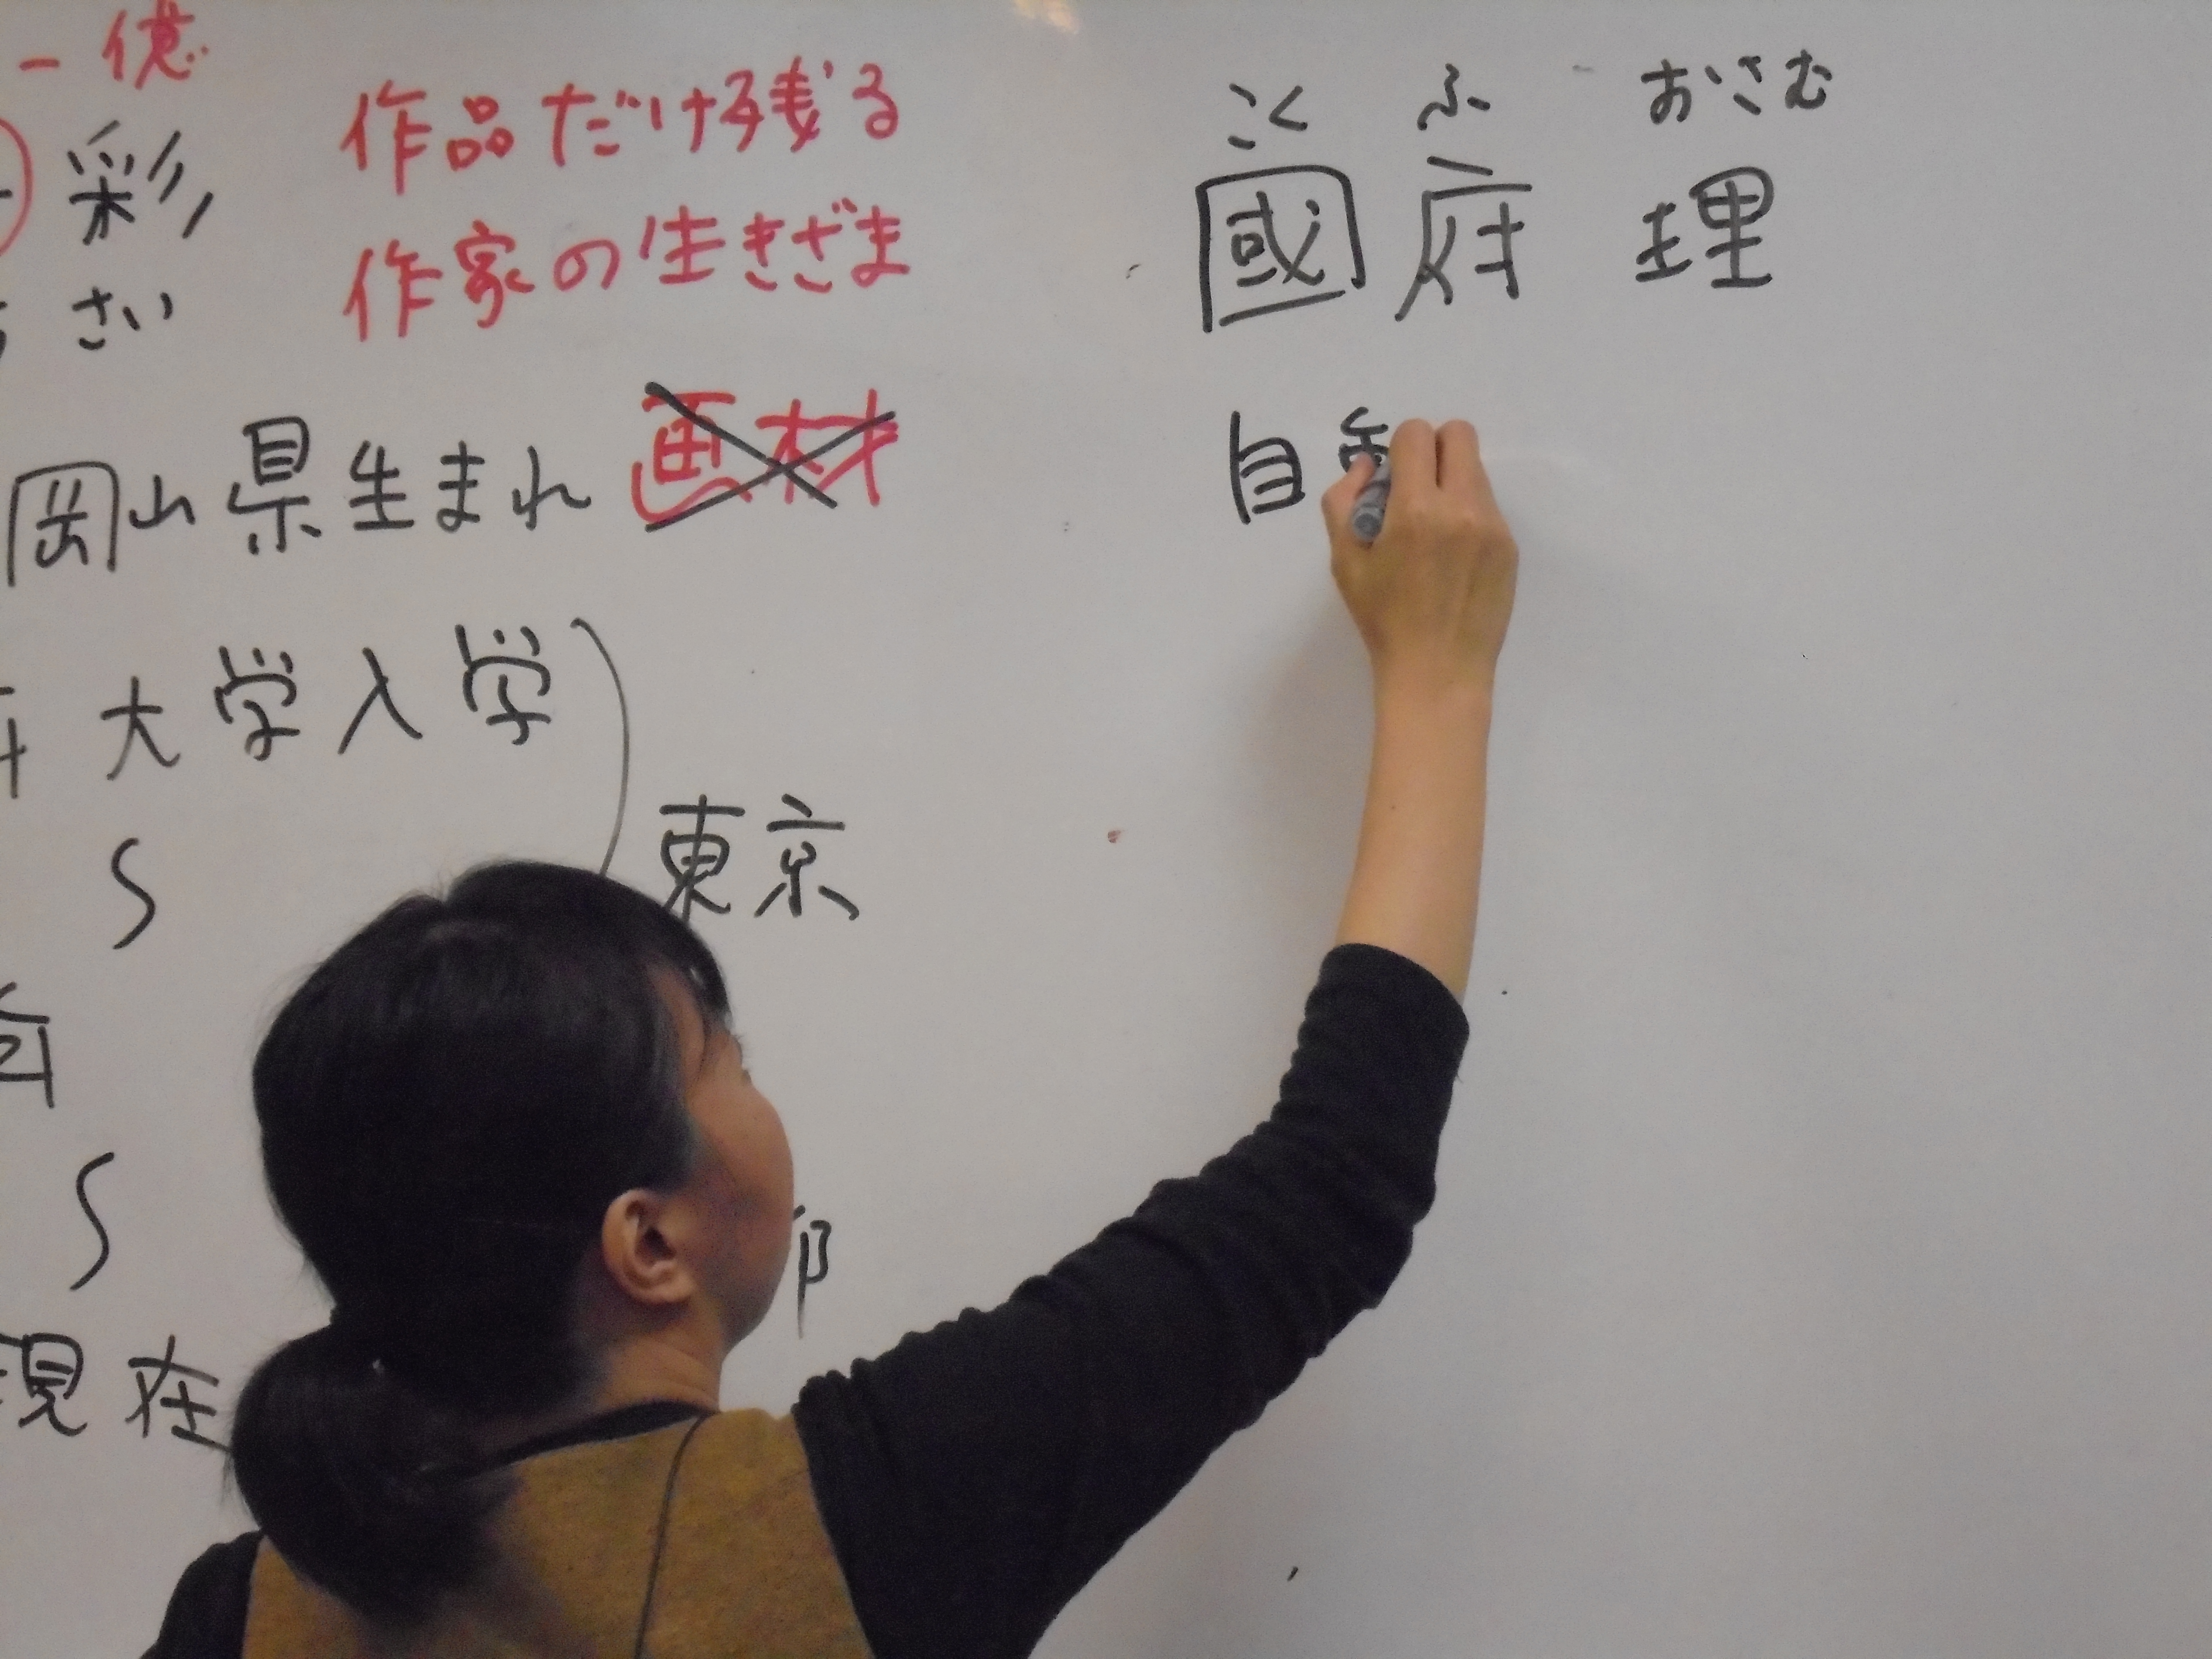 一億
彩
さい
作品だけ残る
作家の生きざま
岡山県生まれ
画材
大学入学
東京
現在
こく ふ おさむ
國府 理
自